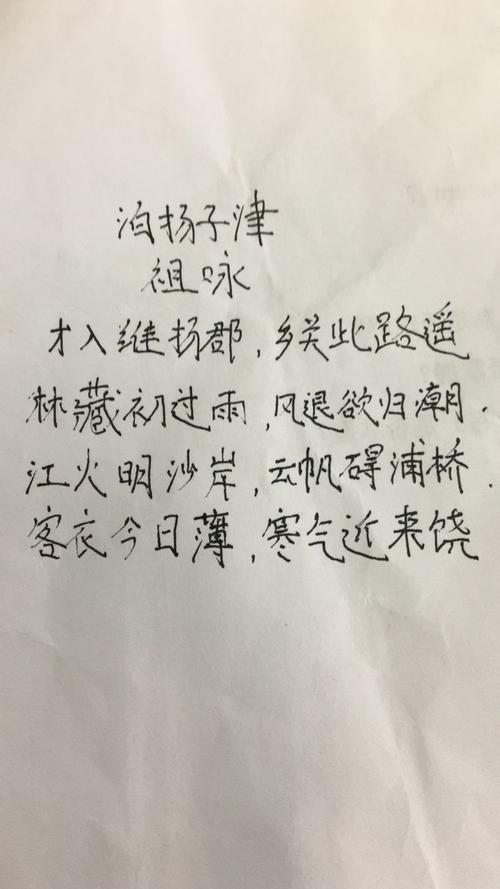 泊扬子津
祖咏
才入维扬郡,乡关此路遥
林藏初过雨,风退欲归潮.
江火明沙岸,云帆碍浦桥.
客衣今日薄,寒气近来饶